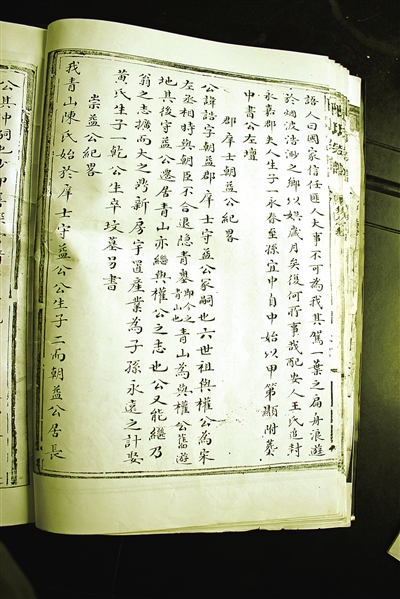 語人曰國家信任匪人大事不可為我其駕一葉之扁舟浪遊
於烟波浩渺之鄉以娛歲月矣復何所事哉配安人王氏追封
永嘉郡夫人生子一永春至孫宜中自中始以甲第顯附葬
中書公左壇
郡庠士朝益公紀畧
公諱諮字朝益郡庠士守益公冢嗣也六世祖與權公為宋
左丞相時與朝臣不合退隱青墺即今之青山也青山為與權公舊遊
地其後守益公遷居青山亦繼與權公之志也公又能繼乃
翁之志擴而大之鼎新房宇置產業為子孫永遠之計娶
黃氏生子一乾公生卒坟墓另書
崇益公紀畧
我青山陳氏始於庠士守益公公生子二而朝益公居長